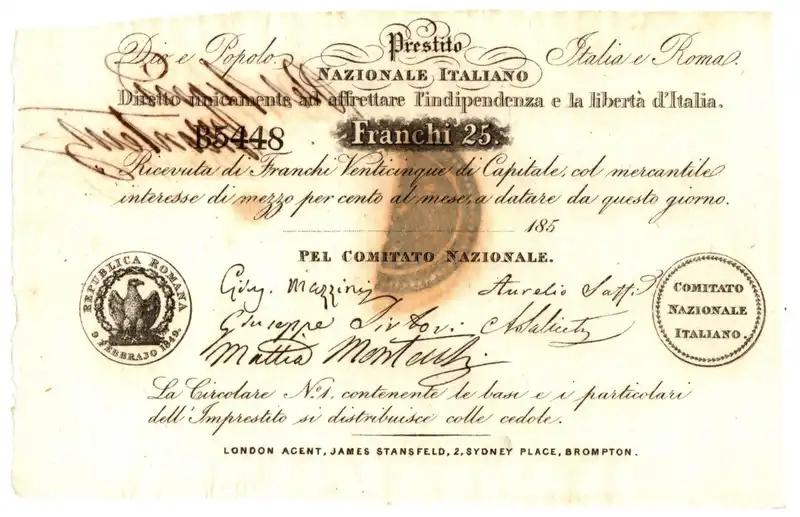 Dio e Popolo. Prestito Italia e Roma.
NAZIONALE ITALIANO
Diretto unicamente ad affrettare l'indipendenza e la libertà d'Italia.
B5448 Franchi 25.
Ricevuta di Franchi Venticinque di Capitale, col mercantile
interesse di mezzo per cento al mese, a datare da questo giorno.
185
PEL COMITATO NAZIONALE.
REPUBLICA ROMANA
9 FEBBRAJO 1849.
Mazzini Aurelio Saffi
Giuseppe Sirtori A Saliceti
Mattia Montecchi
COMITATO
NAZIONALE
ITALIANO.
La Circolare No. 1. contenente le basi e i particolari
dell'Imprestito si distribuisce colle cedole.
LONDON AGENT, JAMES STANSFELD, 2, SYDNEY PLACE, BROMPTON.